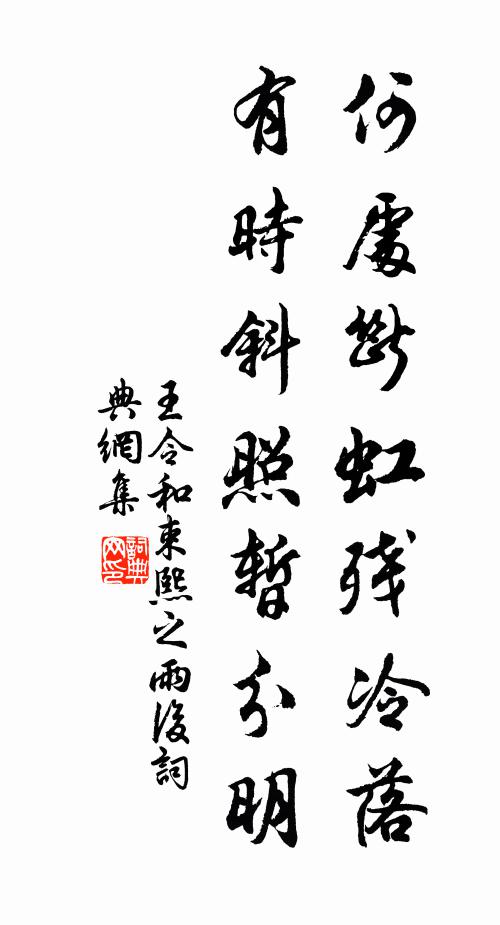 何處斷虹残冷落
有時斜照暫分明
王令和束熙之雨後詞
典網集
詞典網印